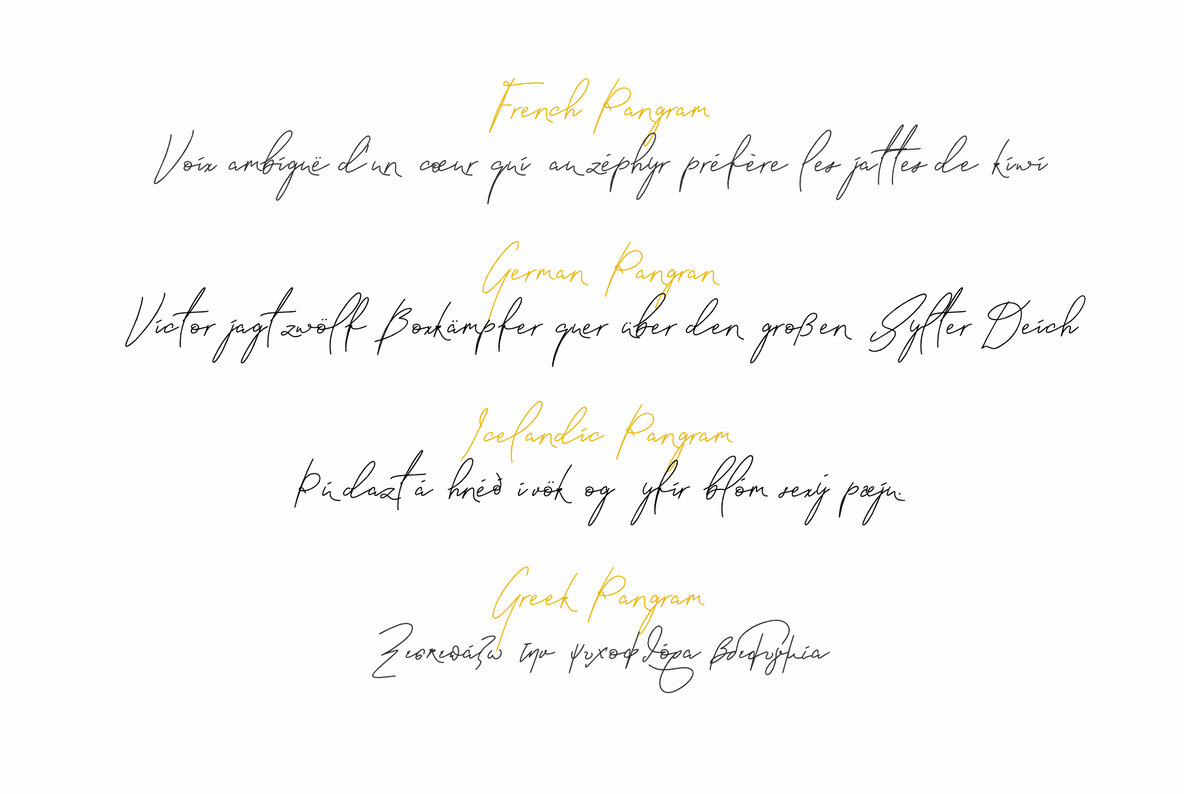 French Pangram
Voix ambiguë d'un cœur qui au zéphyr préfère les jattes de kiwi
German Pangran
Victor jagt zwölf Boxkämpfer quer über den großen Sylter Deich
Icelandic Pangram
Þú dazt á hnéð í vök og yfir blóm sexý pæju.
Greek Pangram
Ξεσκεπάζω την ψυχοφθόρα βδελυγμία